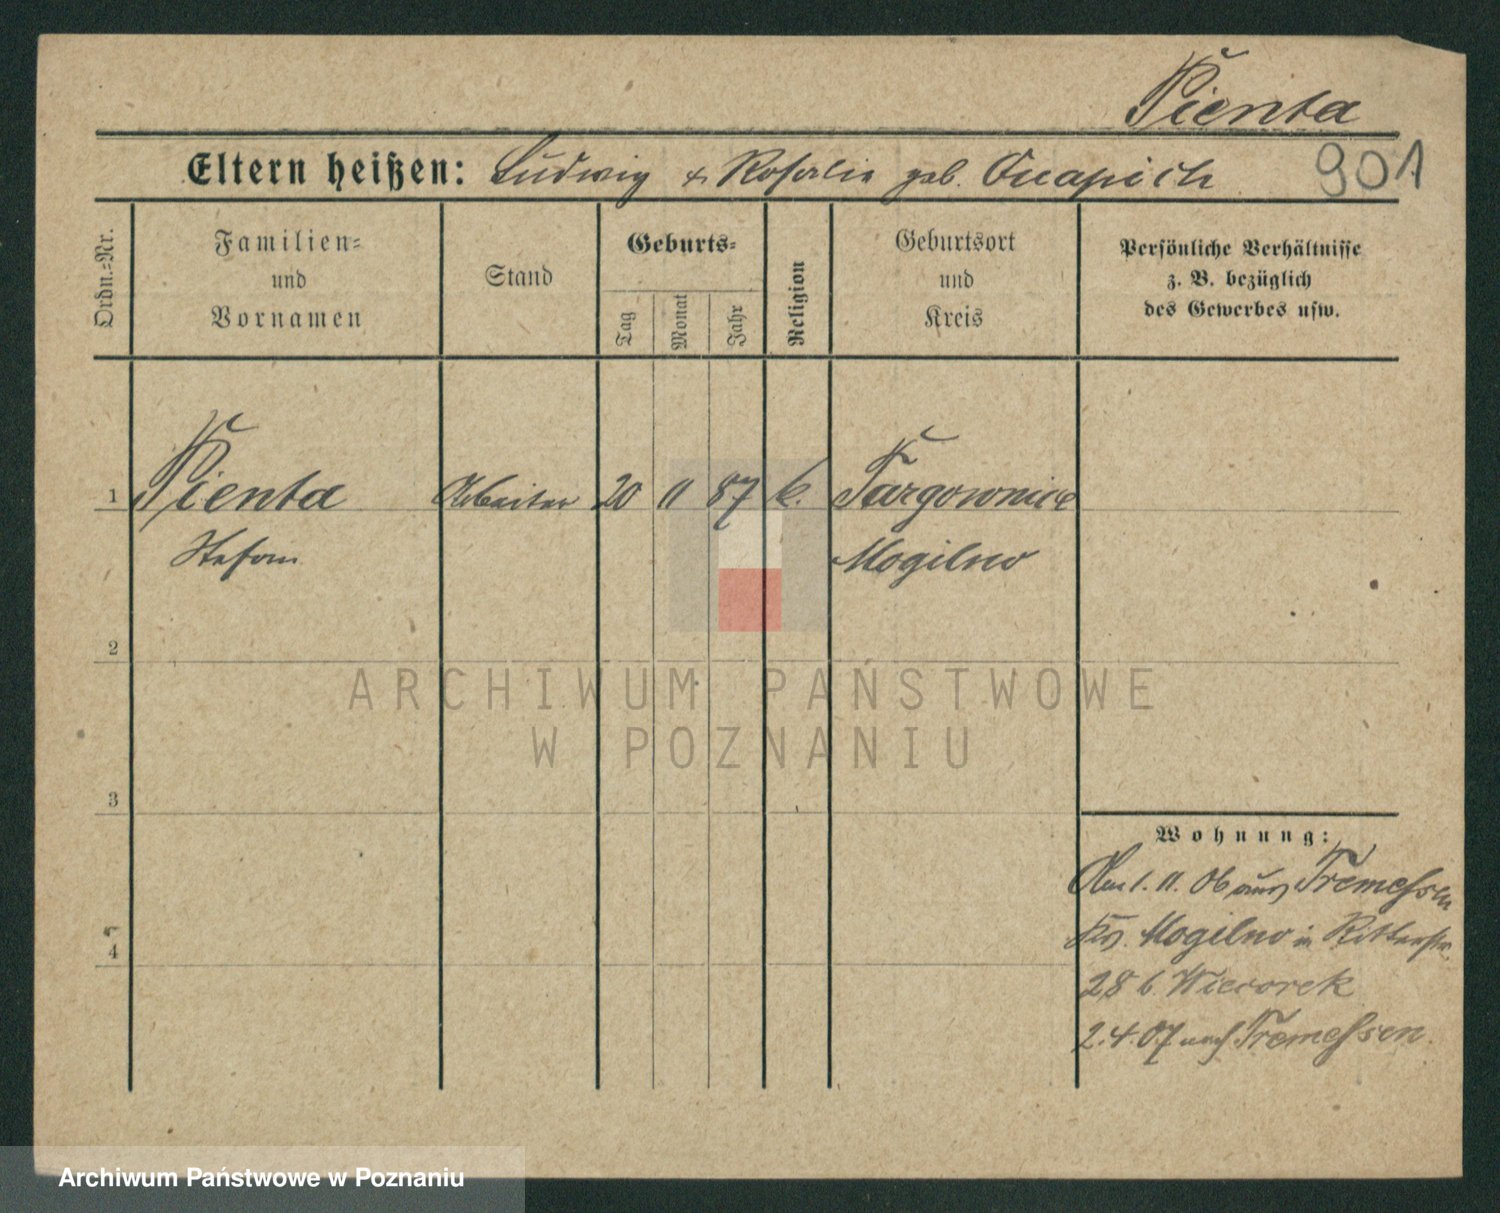 Pienta
Eltern heißen: Ludwig & Rosalie geb.
901
Ordn.=Nr.
Familien=
und
Vornamen
Stand
Geburts=
Tag
Monat
Jahr
Religion
Geburtsort
und
Kreis
Persönliche Verhältnisse
z. B. bezüglich
des Gewerbes usw.
1 Pienta Arbeiter 20 11 87 k. Targownice
Stefan Mogilno
2
3
4
Wohnung:
Am 1. 11. 06 aus Tremessen
Krs. Mogilno in Ritterstr.
28 b. Wieczorek
2.4.07 nach Tremessen.
ARCHIWUM PAŃSTWOWE
W POZNANIU
Archiwum Państwowe w Poznaniu